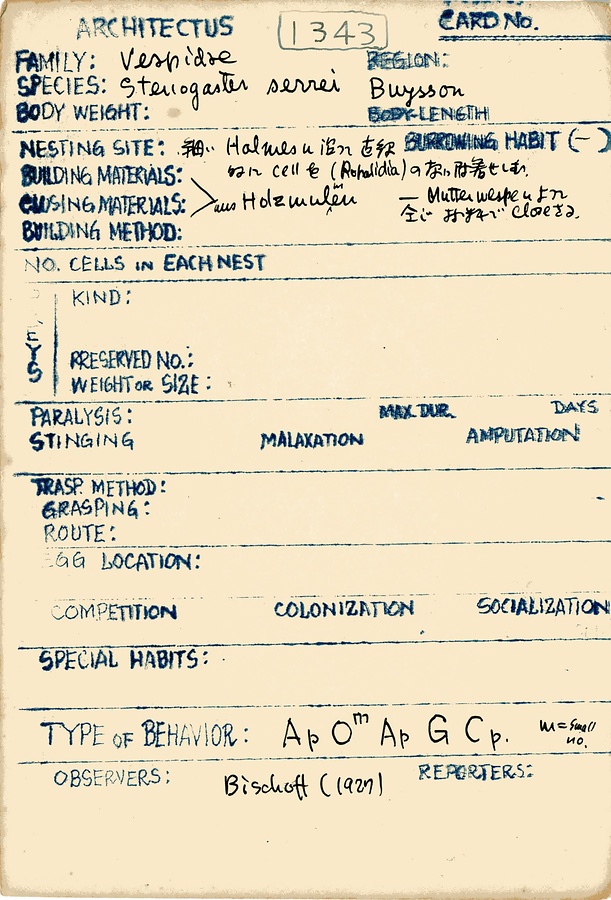 ARCHITECTUS 1343 CARD NO.
FAMILY: Vespidae REGION:
SPECIES: Stenogaster serrei Buysson
BODY WEIGHT: BODY LENGTH
NESTING SITE: 細い Halmes に沿って 直線 BURROWING HABIT (-)
BUILDING MATERIALS: 的に cell を (Ropalidia) の
CLOSING MATERIALS: aus Holzmulen — Mutterwespe によって
BUILDING METHOD: close さる.
NO. CELLS IN EACH NEST
KIND:
EYS
PRESERVED NO.:
WEIGHT OR SIZE:
PARALYSIS: MAX. DUR. DAYS
STINGING MALAXATION AMPUTATION
TRASP. METHOD:
GRASPING:
ROUTE:
EGG LOCATION:
COMPETITION COLONIZATION SOCIALIZATION
SPECIAL HABITS:
TYPE OF BEHAVIOR: Ap O^m Ap G Cp. m = small no.
OBSERVERS: Bischoff (1927) REPORTERS: